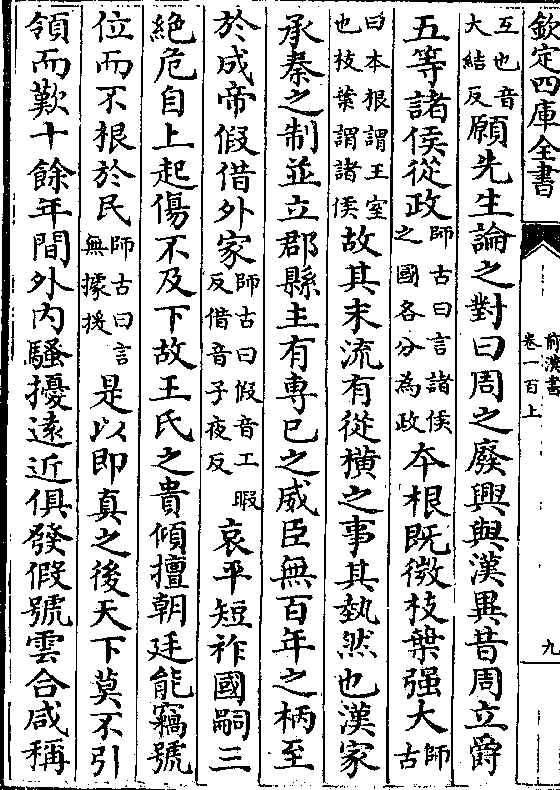 欽定四庫全書
前漢書
卷一百上
九
互也音大結反願先生論之對曰周之廢興與漢異昔周立爵
五等諸侯從政師古曰言諸侯之國各分為政本根既微枝葉强大師古
曰本根謂王室也枝葉謂諸侯故其末流有從横之事其埶然也漢家
承秦之制並立郡縣主有専已之威臣無百年之柄至
於成帝假借外家師古曰假音工暇反借音子夜反哀平短祚國嗣三
絶危自上起傷不及下故王氏之貴傾擅朝廷能竊號
位而不根於民師古曰言無據援是以即真之後天下莫不引
領而歎十餘年間外内騷擾逺近俱發假號雲合咸稱